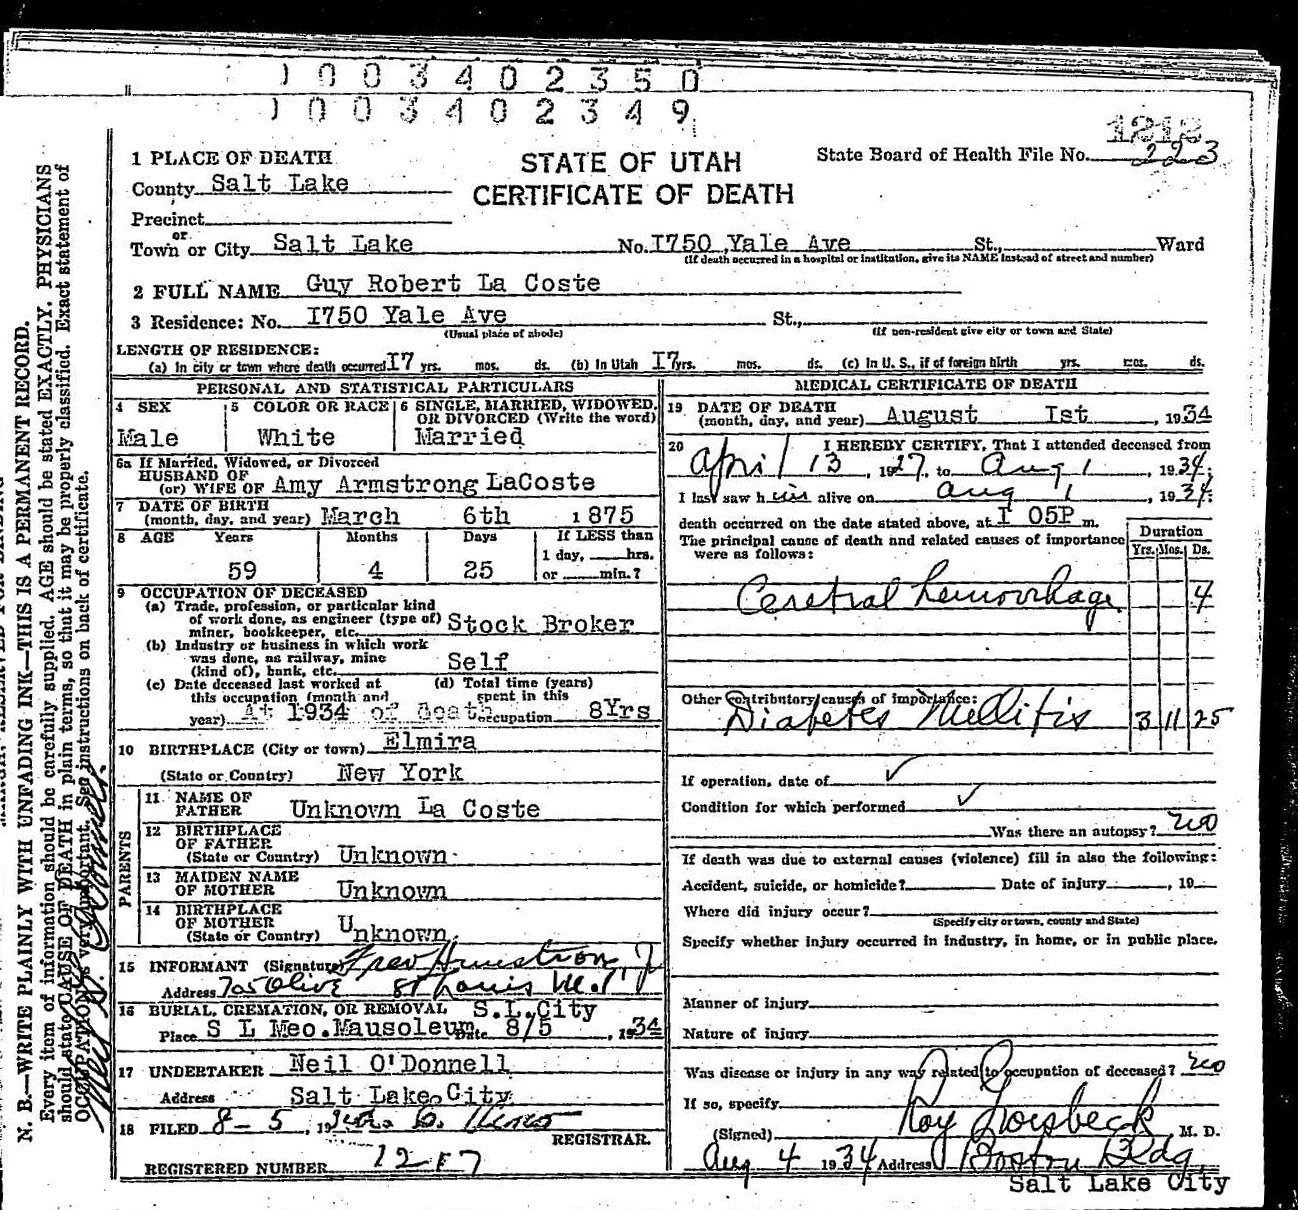 1003402350
1003402349
1212
STATE OF UTAH
CERTIFICATE OF DEATH
State Board of Health File No. 223
1 PLACE OF DEATH
County Salt Lake
Precinct
or
Town or City Salt Lake No. I750 Yale Ave St., Ward
(If death occurred in a hospital or institution, give its NAME instead of street and number)
2 FULL NAME Guy Robert La Coste
3 Residence: No. I750 Yale Ave St.,
(Usual place of abode) (If non-resident give city or town and State)
LENGTH OF RESIDENCE:
(a) In city or town where death occurred I7 yrs. mos. ds. (b) In Utah I7 yrs. mos. ds. (c) In U. S., if of foreign birth yrs. mos. ds.
PERSONAL AND STATISTICAL PARTICULARS
4 SEX 5 COLOR OR RACE 6 SINGLE, MARRIED, WIDOWED, OR DIVORCED (Write the word)
Male White Married
6a If Married, Widowed, or Divorced
HUSBAND OF
(or) WIFE OF Amy Armstrong LaCoste
7 DATE OF BIRTH
(month, day, and year) March 6th 1875
8 AGE Years Months Days If LESS than
1 day, hrs.
59 4 25 or min.?
9 OCCUPATION OF DECEASED
(a) Trade, profession, or particular kind
of work done, as engineer (type of)
miner, bookkeeper, etc. Stock Broker
(b) Industry or business in which work
was done, as railway, mine
(kind of), bank, etc. Self
(c) Date deceased last worked at (d) Total time (years)
this occupation (month and spent in this
year) At 1934 of death occupation 8Yrs
10 BIRTHPLACE (City or town) Elmira
(State or Country) New York
PARENTS
11 NAME OF
FATHER Unknown La Coste
12 BIRTHPLACE
OF FATHER
(State or Country) Unknown
13 MAIDEN NAME
OF MOTHER Unknown
14 BIRTHPLACE
OF MOTHER
(State or Country) Unknown
15 INFORMANT (Signature)
Address 705 Olive St Louis
16 BURIAL, CREMATION, OR REMOVAL S.L.City
Place S L Meo.Mausoleum Date 8/5, 1934
17 UNDERTAKER Neil O'Donnell
Address Salt Lake City
18 FILED 8-5, 19
REGISTRAR.
REGISTERED NUMBER
MEDICAL CERTIFICATE OF DEATH
19 DATE OF DEATH
(month, day, and year) August Ist, 1934
20 I HEREBY CERTIFY, That I attended deceased from
April 13, 1927, to Aug 1, 1934;
I last saw him alive on Aug 1, 1934;
death occurred on the date stated above, at I 05P m.
The principal cause of death and related causes of importance
were as follows:
Duration
Yrs. Mos. Ds.
Ceretral hemorrhage 4
Other contributory causes of importance:
Diabetes Mellitis 3 11 25
If operation, date of
Condition for which performed
Was there an autopsy? no
If death was due to external causes (violence) fill in also the following:
Accident, suicide, or homicide? Date of injury, 19
Where did injury occur?
(Specify city or town, county and State)
Specify whether injury occurred in industry, in home, or in public place.
Manner of injury
Nature of injury
Was disease or injury in any way related to occupation of deceased? no
If so, specify
(Signed) Roy Groesbeck, M. D.
Aug 4 1934 Address Boston Bldg
Salt Lake City
N. B.—WRITE PLAINLY WITH UNFADING INK—THIS IS A PERMANENT RECORD.
Every item of information should be carefully supplied. AGE should be stated EXACTLY. PHYSICIANS
should state CAUSE OF DEATH in plain terms, so that it may be properly classified. Exact statement of
OCCUPATION is very important. See instructions on back of certificate.